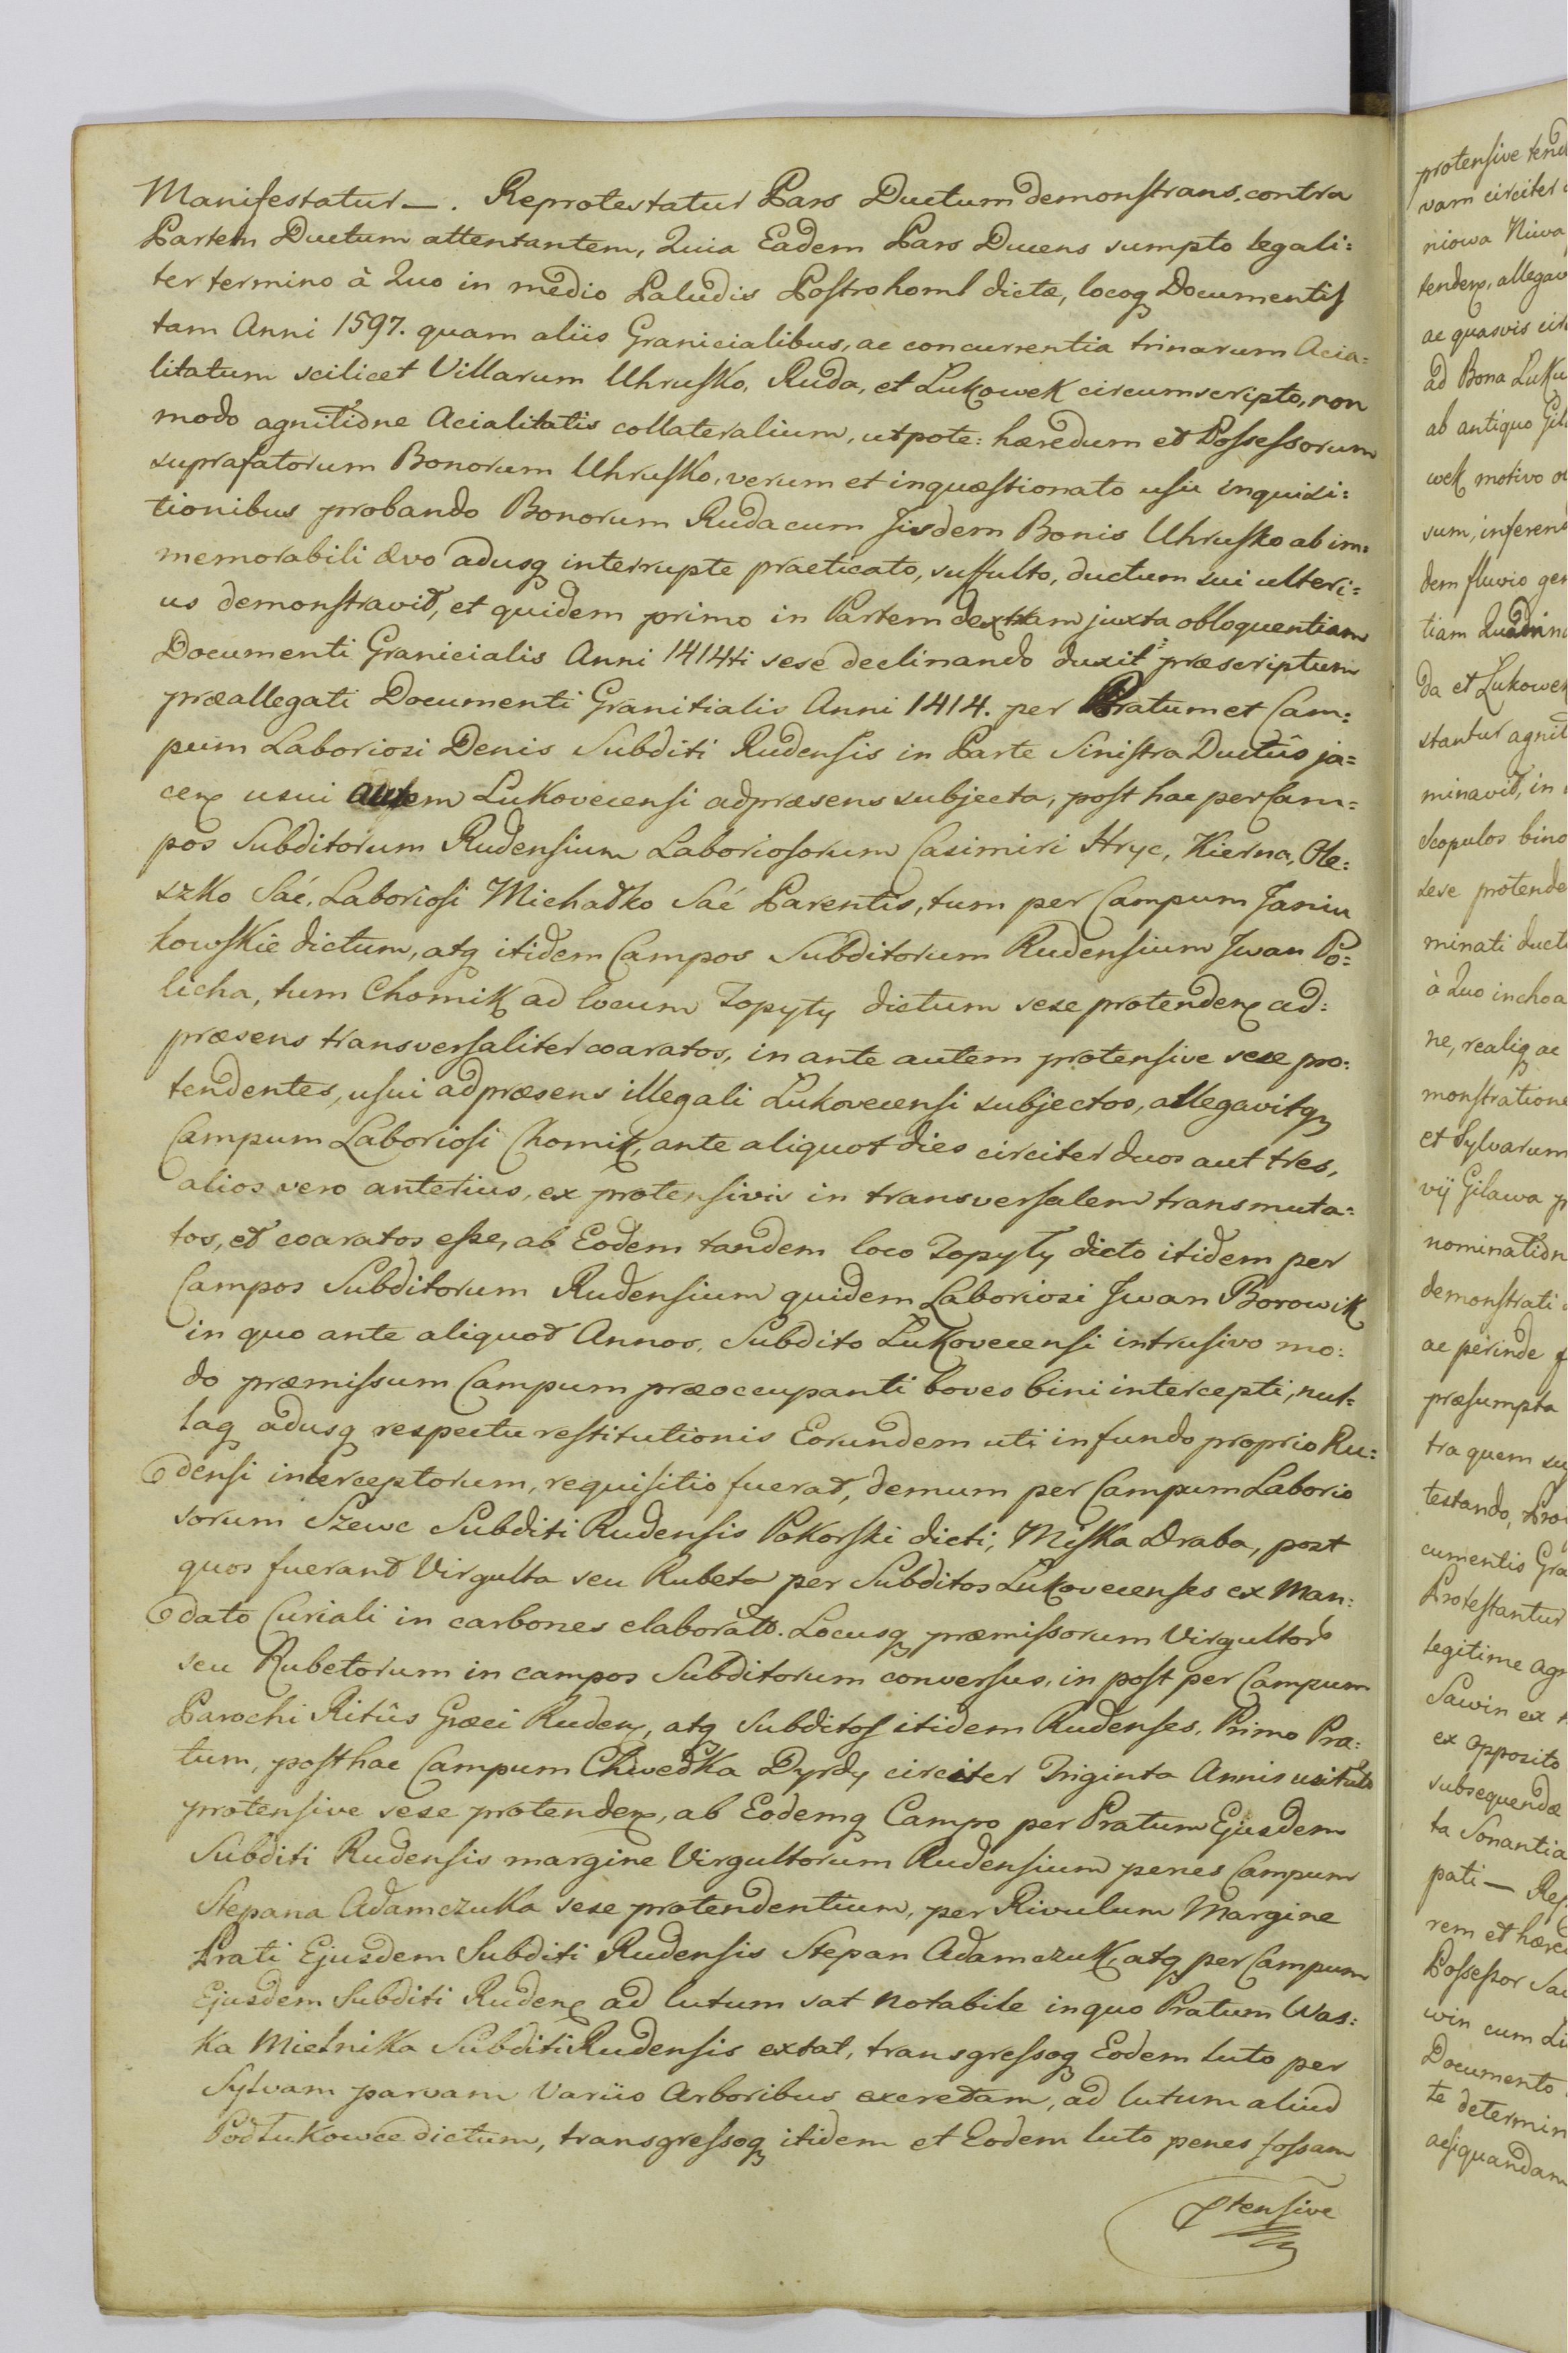 Manifestatur —. Reprotestatur Pars Ductum demonstrans, contra
Partem Ductum attentantem, Quia Eadem Pars Ducens sumpto legali:
ter termino à Quo in medio Paludis Postrohoml dictæ, locoq Documentis
tam Anni 1597. quam aliis Granicialibus, ac concurrentia trinarum Acia:
litatum scilicet Villarum Uhrusko, Ruda, et Lukowek circumscripto, non
modo agnitione Acialitatis collateralium, utpote: hæredum et Possessorum
suprafatorum Bonorum Uhrusko, verum et inquæstionato usu inquisi:
tionibus probando Bonorum Ruda cum Iisdem Bonis Uhrusko ab im:
memorabili ævo adusq interrupte practicato, suffulto, ductum sui ulteri:
us demonstravit, et quidem primo in Partem dextram juxta obloquentiam
Documenti Granicialis Anni 1414ti sese declinando duxit præscriptum
præallegati Documenti Granitialis Anni 1414. per Pratum et Cam:
pum Laboriosi Denis Subditi Rudensis in Parte Sinistra Ductûs ja=
cen usui autem Lukovecensi adpræsens subjecta, post hac per Cam=
pos Subditorum Rudensium Laboriosorum Casimiri Hryc, Kierna, Ole:
szko Saé, Laboriosi Michałko Saé Parentis, tum per Campum Janiu
kowskie dictum, atq itidem Campos Subditorum Rudensium Iwan Po:
licha, tum Chomik ad locum Zopyty dictum sese protenden ad:
præsens transversaliter coaratos, in ante autem protensive sese pro:
tendentes, usui adpræsens illegali Lukovecensi subjectos, allegavitq
Campum Laboriosi Chomik, ante aliquot dies circiter duos aut tres,
alios vero anterius, ex protensivis in transversalem transmuta:
tos, et coaratos esse, ab Eodem tandem loco Zopyty dicto itidem per
Campos Subditorum Rudensium quidem Laboriosi Iwan Borowik
in quo ante aliquot Annos, Subdito Lukovecensi intrusivo mo:
do præmissum Campum præoccupanti boves bini intercepti, nul=
laq adusq respectu restitutionis Eorundem uti in fundo proprio Ru:
densi interceptorum, requisitio fuerat, demum per Campum Laborio
sorum Szewc Subditi Rudensis Pokorski dicti, Miska Draba, post
quos fuerant Virgulta seu Rubeta per Subditos Lukovecenses ex Man:
dato Curiali in carbones elaborata. Locusq præmissorum Virgultor
seu Rubetorum in campos Subditorum conversus, in post per Campum
Parochi Ritûs Græci Ruden, atq Subditos itidem Rudenses, Primo Pra:
tum, post hac Campum Chwedka Dyrdy circiter Triginta Annis usitato
protensive sese protenden, ab Eodemq Campo per Pratum Ejusdem
Subditi Rudensis margine Virgultorum Rudensium penes Campum
Stepana Adamczuka sese protendentium, per Rivulum Margine
Prati Ejusdem Subditi Rudensis Stepan Adamczuk, atq per Campum
Ejusdem Subditi Ruden ad lutum sat notabile in quo Pratum Was:
ka Mielnika Subditi Rudensis extat, transgressoq Eodem luto per
Sylvam parvam Variis Arboribus excretam, ad lutum aliud
Podłukowce dictum, transgressoq itidem et Eodem luto penes fossam
ptensive
protensive tend
vam circiter
niowa Niwa
tenden, allegav
ac quasvis cir
ad Bona Luku
ab antiquo Gil
wek motivo
sum, inferend
dem fluvio ger
tiam
da et Lukowek
stantur agnit
minavit, in
Scopulos bino
sese protende
minati ducti
à Quo inchoa
ne, realiq ac
monstratione
et Sylvarum
vij Gilawa
nomination
demonstrati
ac perinde
præsumpta
tra quem su
testando,
cumentis Gra
Protestantur
legitime agn
Sawin ex
ex opposito
subsequendæ
ta Sonantia
pati —
rem et hære
Possessor Sa
win cum
Documento
te determin